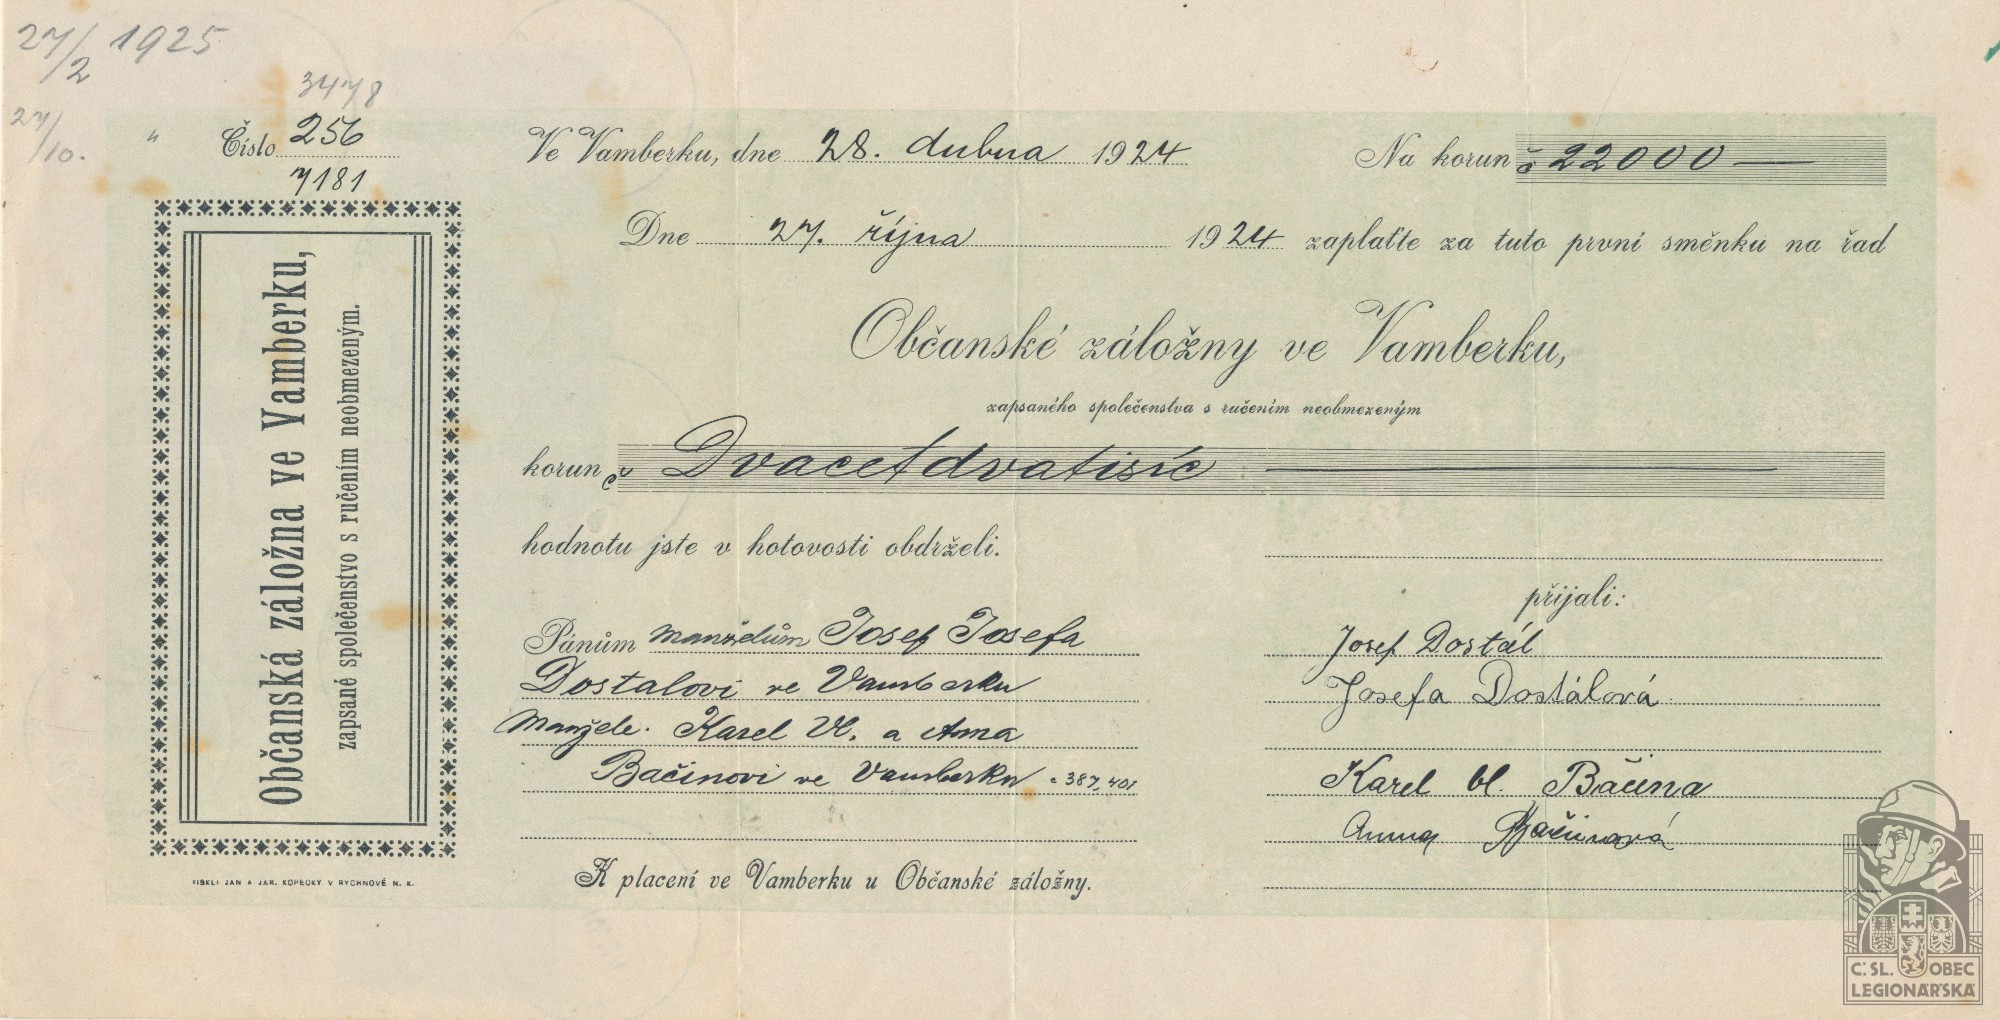 27/2 1925
3478
27/10. "
Číslo 256
7181
Ve Vamberku, dne 28. dubna 1924
Na korun č 22000 —
Dne 27. října 1924 zaplaťte za tuto první směnku na řad
Občanské záložny ve Vamberku,
zapsaného společenstva s ručením neobmezeným
korun č Dvacetdvatisíc —
hodnotu jste v hotovosti obdrželi.
Pánům manželům Josef Josefa
Dostalovi ve Vamberku
Manžele. Karel Vl. a Anna
Bačinovi ve Vamberku č 387, 401
K placení ve Vamberku u Občanské záložny.
přijali:
Josef Dostál
Josefa Dostálová
Karel Vl. Bačina
Anna Bačinová
Občanská záložna ve Vamberku,
zapsané společenstvo s ručením neobmezeným.
TISKLI JAN A JAR. KOPECKÝ V RYCHNOVĚ N. K.
Č.SL. OBEC
LEGIONÁŘSKÁ